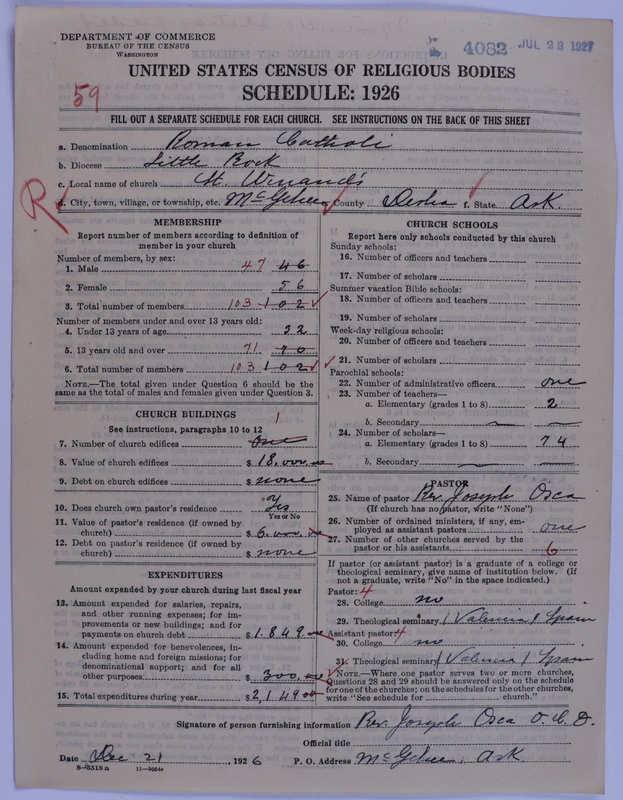 DEPARTMENT OF COMMERCE
BUREAU OF THE CENSUS
WASHINGTON
4082 JUL 23 1927
UNITED STATES CENSUS OF RELIGIOUS BODIES
SCHEDULE: 1926
59
FILL OUT A SEPARATE SCHEDULE FOR EACH CHURCH. SEE INSTRUCTIONS ON THE BACK OF THIS SHEET
a. Denomination Roman Catholi
b. Diocese Little Rock
c. Local name of church St. Winand's
R
d. City, town, village, or township, etc. McGehee County Desha f. State Ark.
MEMBERSHIP
Report number of members according to definition of
member in your church
Number of members, by sex:
1. Male 47 46
2. Female 56
3. Total number of members 103 102
Number of members under and over 13 years old:
4. Under 13 years of age 32
5. 13 years old and over 71 70
6. Total number of members 103 102
NOTE.—The total given under Question 6 should be the
same as the total of males and females given under Question 3.
CHURCH BUILDINGS
See instructions, paragraphs 10 to 12
1
7. Number of church edifices one
8. Value of church edifices $ 18,000.00
9. Debt on church edifices $ none
10. Does church own pastor's residence Yes
Yes or No
11. Value of pastor's residence (if owned by
church) $ 6,000.00
12. Debt on pastor's residence (if owned by
church) $ none
EXPENDITURES
Amount expended by your church during last fiscal year
13. Amount expended for salaries, repairs,
and other running expenses; for im-
provements or new buildings; and for
payments on church debt $ 1,849.00
14. Amount expended for benevolences, in-
cluding home and foreign missions; for
denominational support; and for all
other purposes $ 300.00
15. Total expenditures during year $ 2,149.00
CHURCH SCHOOLS
Report here only schools conducted by this church
Sunday schools:
16. Number of officers and teachers
17. Number of scholars
Summer vacation Bible schools:
18. Number of officers and teachers
19. Number of scholars
Week-day religious schools:
20. Number of officers and teachers
21. Number of scholars
Parochial schools:
22. Number of administrative officers one
23. Number of teachers—
a. Elementary (grades 1 to 8) 2
b. Secondary
24. Number of scholars—
a. Elementary (grades 1 to 8) 74
b. Secondary
PASTOR
25. Name of pastor Rev. Joseph Osca
(If church has no pastor, write "None")
26. Number of ordained ministers, if any, em-
ployed as assistant pastors one
27. Number of other churches served by the
pastor or his assistants 6
If pastor (or assistant pastor) is a graduate of a college or
theological seminary, give name of institution below. (If
not a graduate, write "No" in the space indicated.)
Pastor: 4
28. College no
29. Theological seminary (Valencia) Spain
Assistant pastor: 4
30. College no
31. Theological seminary (Valencia) Spain
NOTE.—Where one pastor serves two or more churches,
Questions 28 and 29 should be answered only on the schedule
for one of the churches; on the schedules for the other churches,
write "See schedule for church."
Signature of person furnishing information Rev. Joseph Osca O.C.D.
Official title
Date Dec 21, 1926 P. O. Address McGehee, Ark
8-5518a 11-9024